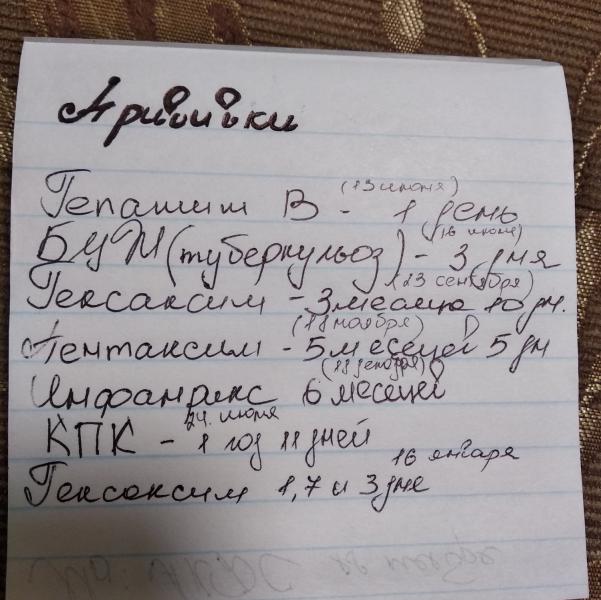 Прививки
(13 июня)
Гепатит В - 1 день
(16 июня)
БЦЖ (туберкульоз) - 3 дня
(23 сентября)
Гексаксим - 3 месяца 10 дн.
(18 ноября)
Пентаксим - 5 месецей 5 дн
(18 декабря)
Инфанрикс 6 месецей
24. июня
КПК - 1 год 11 дней
16 января
Гексоксим 1,7 и 3 дне